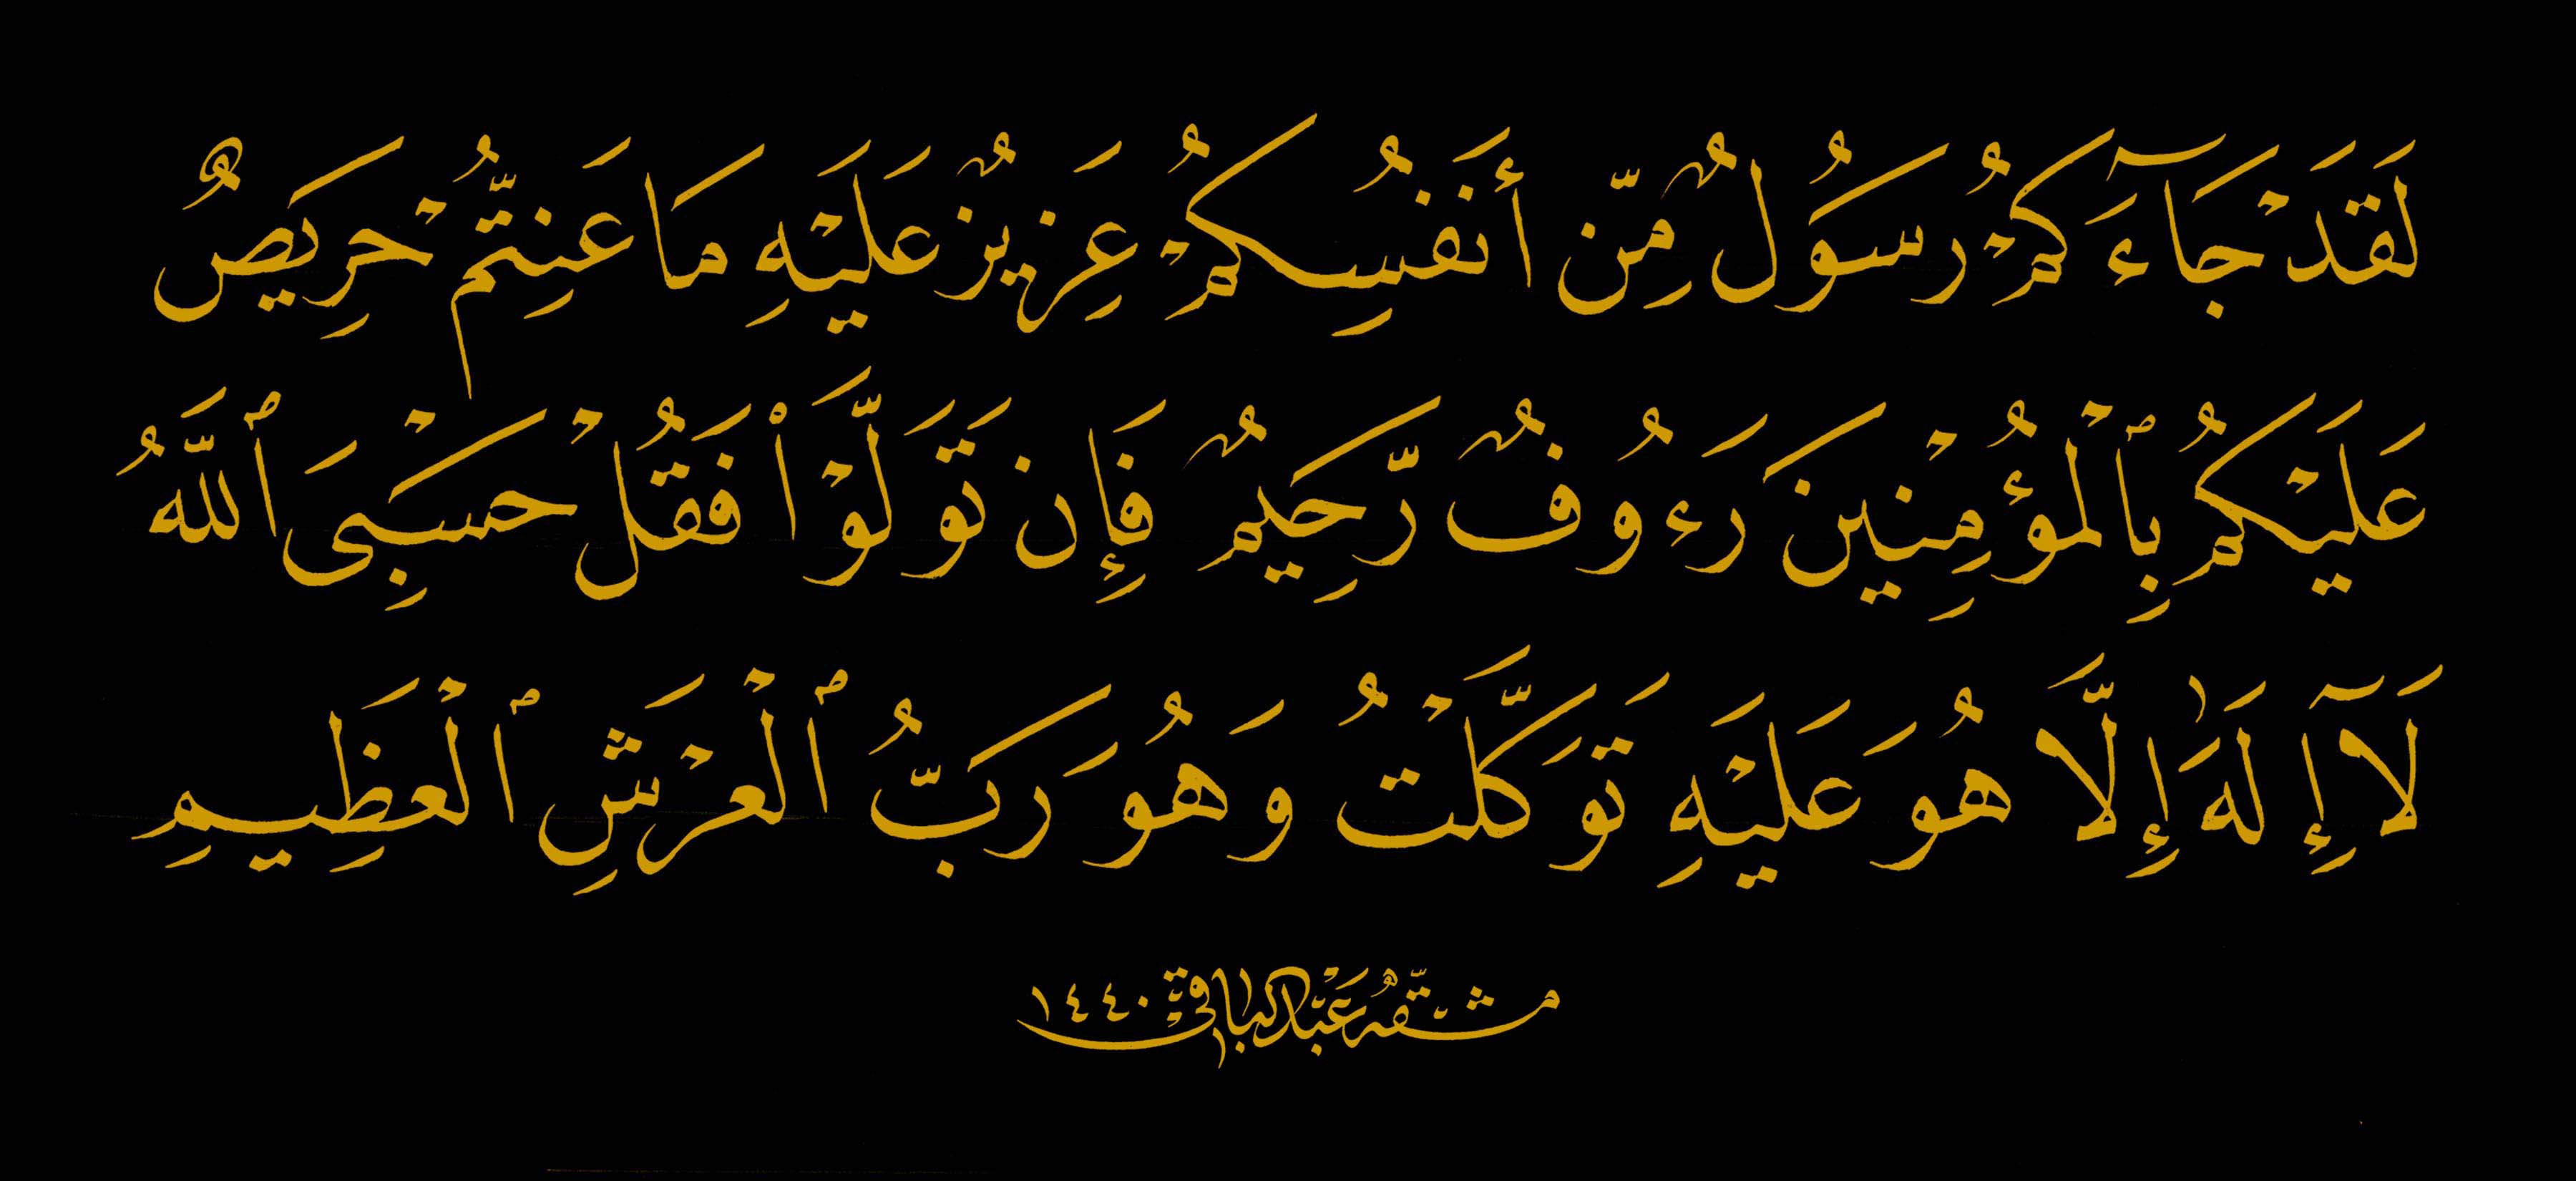 لَقَدْ جَآءَكُمْ رَسُولٌ مِّنْ أَنفُسِكُمْ عَزِيزٌ عَلَيْهِ مَا عَنِتُّمْ حَرِيصٌ
عَلَيْكُم بِٱلْمُؤْمِنِينَ رَءُوفٌ رَّحِيمٌ فَإِن تَوَلَّوْا۟ فَقُلْ حَسْبِىَ ٱللَّهُ
لَآ إِلَٰهَ إِلَّا هُوَ عَلَيْهِ تَوَكَّلْتُ وَهُوَ رَبُّ ٱلْعَرْشِ ٱلْعَظِيمِ
مشقه عبد الباقي ١٤٤٠